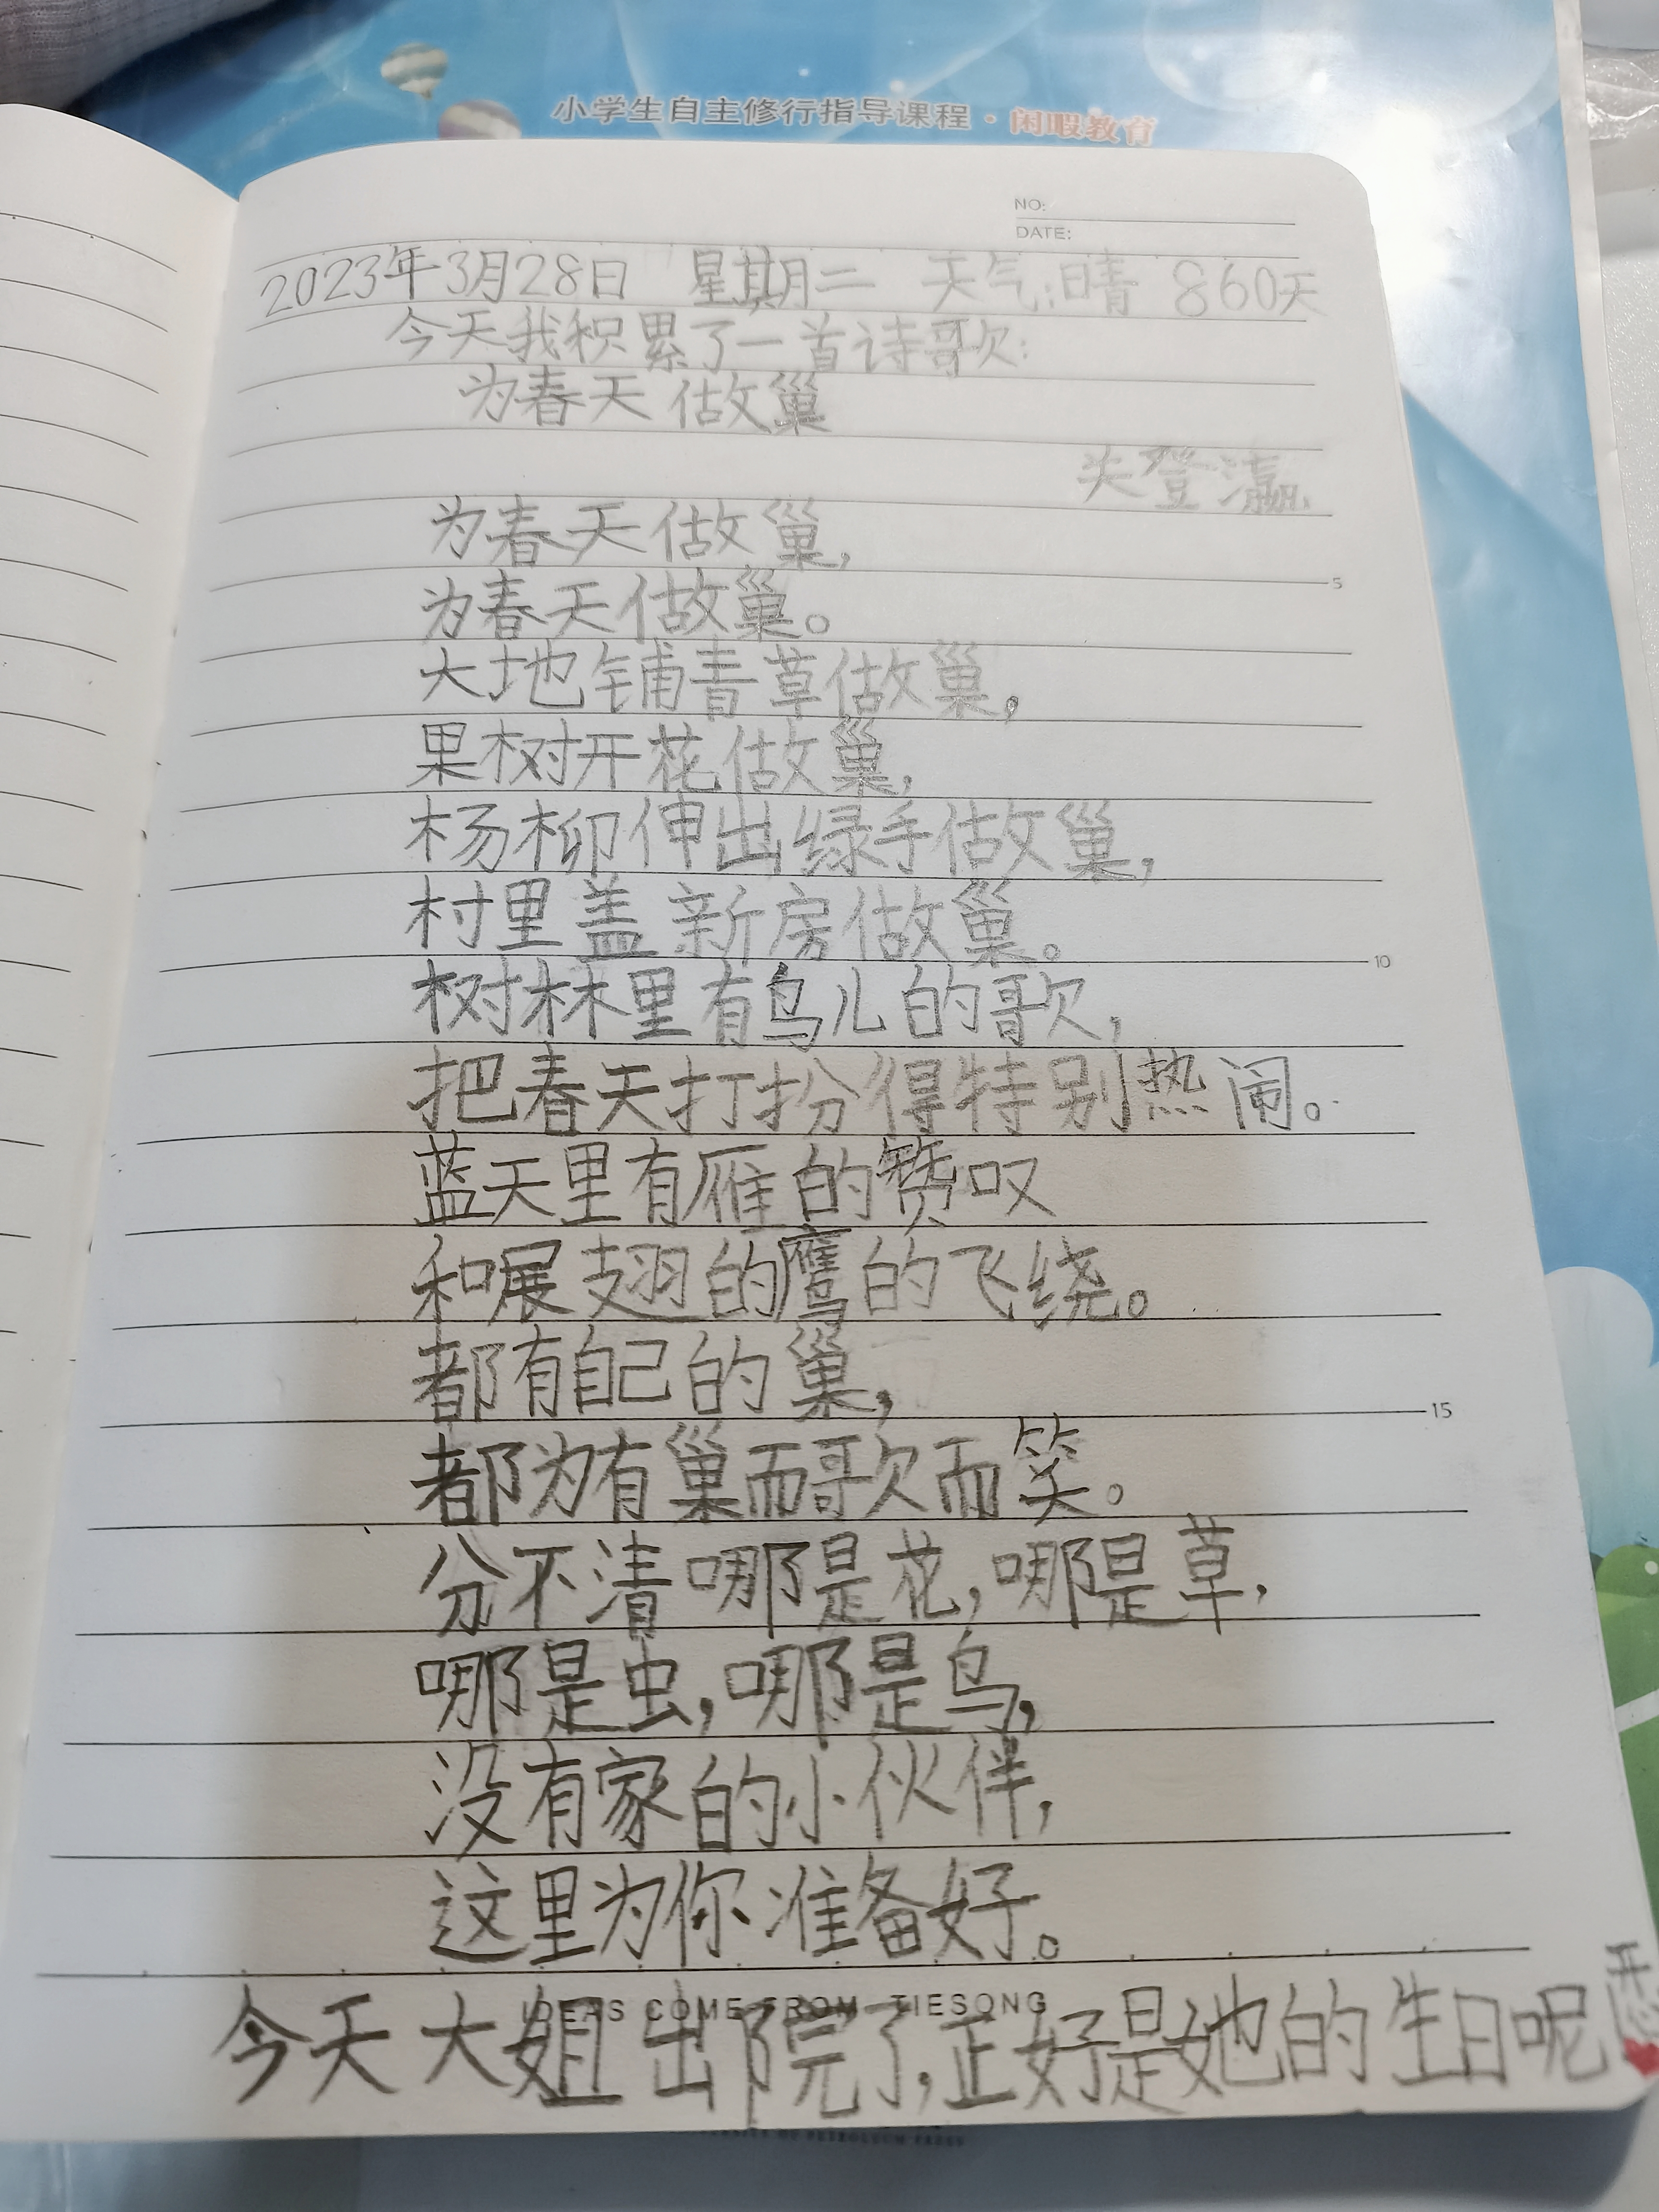 小学生自主修行指导课程·闲暇教育
NO:
DATE:
2023年3月28日 星期二 天气:晴 860天
今天我积累了一首诗歌:
为春天做巢
失登瀛
为春天做巢,
为春天做巢。
5
大地铺青草做巢,
果树开花做巢,
杨柳伸出绿手做巢,
村里盖新房做巢。
10
树林里有鸟儿的歌,
把春天打扮得特别热闹。
蓝天里有雁的赞叹
和展翅的鹰的飞绕。
都有自己的巢,
15
都为有巢而歌而笑。
分不清哪是花,哪是草,
哪是虫,哪是鸟,
没有家的小伙伴,
这里为你准备好。
IDEAS COME FROM TIESONG
今天大姐出院了,正好是她的生日呢
开